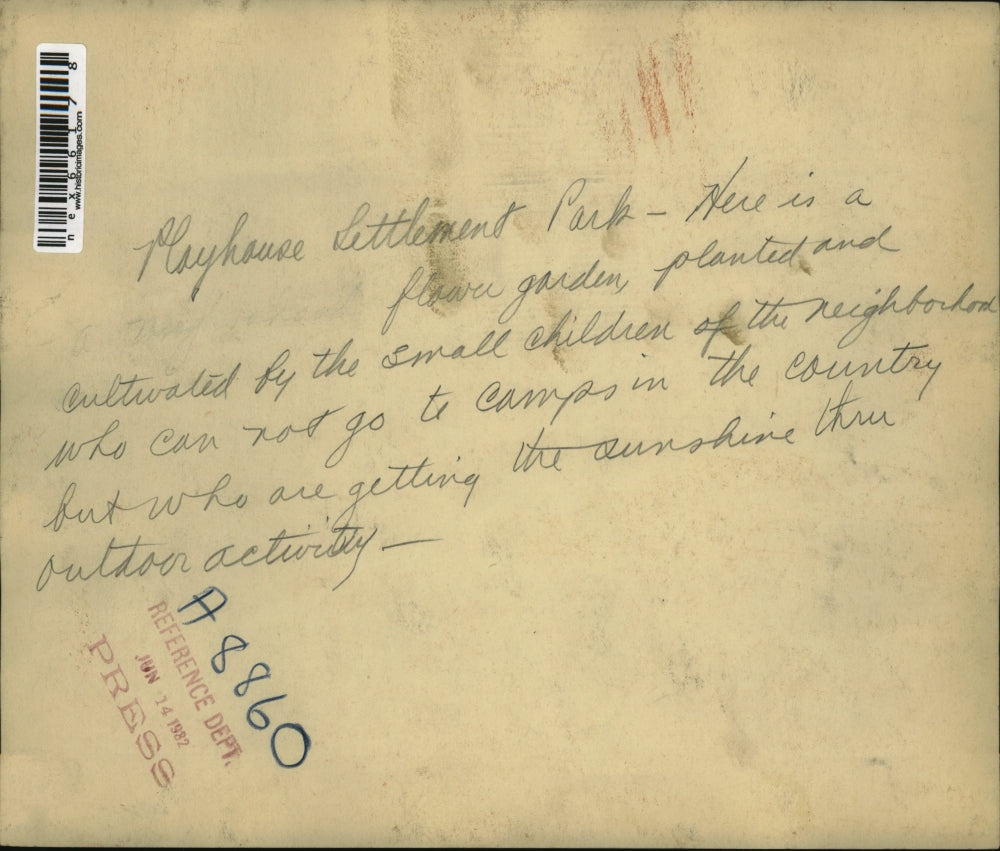 Playhouse Settlement Park – Here is a
flower garden, planted and
cultivated by the small children of the neighborhood
who can not go to camps in the country
but who are getting the sunshine thru
outdoor activity —
A 8860
REFERENCE DEPT.
JUN 14 1982
PRESS
nex66178
www.historicimages.com